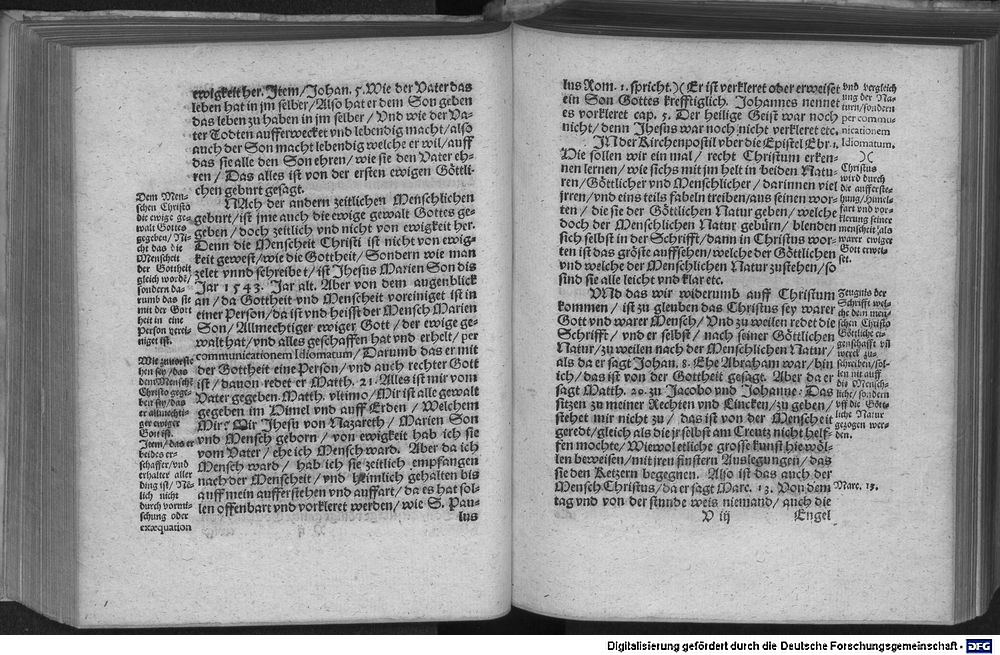 ewigkeit her. Item/Johan. 5. Wie der Vater das
leben hat in jm selber/Also hat er dem Son geben
das leben zu haben in jm selber/ Vnd wie der Va-
ter Todten aufferwecket vnd lebendig macht/also
auch der Son macht lebendig welche er wil/auff
das sie alle den Son ehren/wie sie den Vater eh-
ren/ Das alles ist von der ersten ewigen Göttli-
chen geburt gesagt.
NAch der andern zeitlichen Menschlichen
geburt/ist jme auch die ewige gewalt Gottes ge-
geben/doch zeitlich vnd nicht von ewigkeit her.
Denn die Menscheit Christi ist nicht von ewig-
keit gewest/wie die Gottheit/ Sondern wie man
zelet vnnd schreibet/ist Jhesus Marien Son dis
Jar 1543. Jar alt. Aber von dem augenblick
an/da Gottheit vnd Menscheit voreiniget ist in
einer Person/da ist vnd heisst der Mensch Marien
Son/Allmechtiger ewiger Gott/der ewige ge-
walt hat/vnd alles geschaffen hat vnd erhelt/per
communicationem Idiomatum/Darumb das er mit
der Gottheit eine Person/vnd auch rechter Gott
ist/dauon redet er Matth. 21. Alles ist mir vom
Vater gegeben. Matth. vltimo/Mir ist alle gewalt
gegeben im Himel vnd auff Erden/ Welchem
Mir? Mir Jhesu von Nazareth/ Marien Son
vnd Mensch geborn/von ewigkeit hab ich sie
vom Vater/ehe ich Mensch ward. Aber da ich
Mensch ward/ hab ich sie zeitlich empfangen
nach der Menscheit/vnd heimlich gehalten bis
auff mein aufferstehen vnd auffart/da es hat sol-
len offenbart vnd vorkleret werden/wie S. Pau-
lus
Dem Men-
schen Christo
die ewige ge-
walt Gottes
gegeben/Ni-
cht das die
Menscheit
der Gottheit
gleich wordē/
sondern da-
rumb das sie
mit der Gott
heit in eine
Person verei-
niget ist.
Wie zuuorste
hen sey/das
dem Mensche
Christo gege-
ben sey/das
er allmechti-
ger ewiger
Gott ist.
Item/das er
beides er-
schaffer/vnd
erhalter aller
ding ist/Ne-
lich nicht
durch vormi-
schung oder
exæquation
lus Rom. 1. spricht.)( Er ist verkleret oder erweiset
ein Son Gottes krefftiglich. Johannes nennet
es vorkleret cap. 5. Der heilige Geist war noch
nicht/denn Jhesus war noch nicht verkleret etc.
IN der Kirchenpostil vber die Epistel Ebr. 1.
Wie sollen wir ein mal/ recht Christum erken-
nen lernen/wie sichs mit jm helt in beiden Natu-
ren/Göttlicher vnd Menschlicher/darinnen viel
jrren/vnd eins teils fabeln treiben/aus seinen wor-
ten/die sie der Göttlichen Natur geben/welche
doch der Menschlichen Natur gebürn/blenden
sich selbst in der Schrifft/dann in Christus wor-
ten ist das gröste auffsehen/welche der Göttlichen
vnd welche der Menschlichen Natur zustehen/so
sind sie alle leicht vnd klar etc.
VNd das wir widerumb auff Christum
kommen/ist zu gleuben das Christus sey warer
Gott vnd warer Mensch/Vnd zu weilen redet die
Schrifft/vnd er selbst/nach seiner Göttlichen
Natur/zu weilen nach der Menschlichen Natur/
als da er sagt Johan. 8. Ehe Abraham war/bin
ich/das ist von der Gottheit gesagt. Aber da er
sagt Matth. 20. zu Jacobo vnd Johanne: Das
sitzen zu meiner Rechten vnd Lincken/zu geben/
stehet mir nicht zu/das ist von der Menscheit
geredt/gleich als die jr selbst am Creutz nicht helf-
fen mochte/Wiewol etliche grosse kunst hie wöl-
len beweisen/mit jren finstern Auslegungen/das
sie den Ketzern begegnen. Also ist das auch der
Mensch Christus/da er sagt Marc. 13. Von dem
tag vnd von der stunde weis niemand/auch die
V iij Engel
vnd vergleich
ung der Na-
turn/sondern
per commu-
nicationem
Idiomatum.
)(
Christus
wird durch
die aufferste-
hung/himel-
fart vnd vor-
klerung seiner
menscheit/als
warer ewiger
Gott erwei-
set.
Zeugnis der
Schrifft wel-
che dem men-
schen Christo
Göttliche ei-
genschafft vñ
werck zu-
schreiben/sol-
len nit auff
die Mensch-
liche/sondern
vff die Gött-
liche Natur
gezogen wer-
den.
Marc. 13.
Digitalisierung gefördert durch die Deutsche Forschungsgemeinschaft - DFG